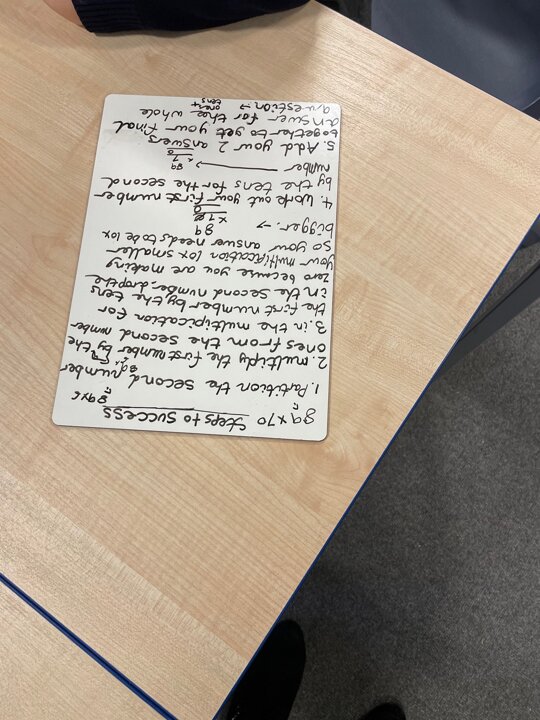 89 x 70 Steps to Success 89 x 6
1. Partition the second number
2. multiply the first number by the
ones from the second number
3. in the multiplication for
the first number by the tens
in the second number drop the
zero because you are making
your multiplication 10x smaller
so your answer needs to be 10x
bigger. →
89
x 7
4. Work out your first number
by the tens for the second
number → 89
x 7
5. Add your 2 answers
together to get your final
answer for the whole
question. → ones + tens